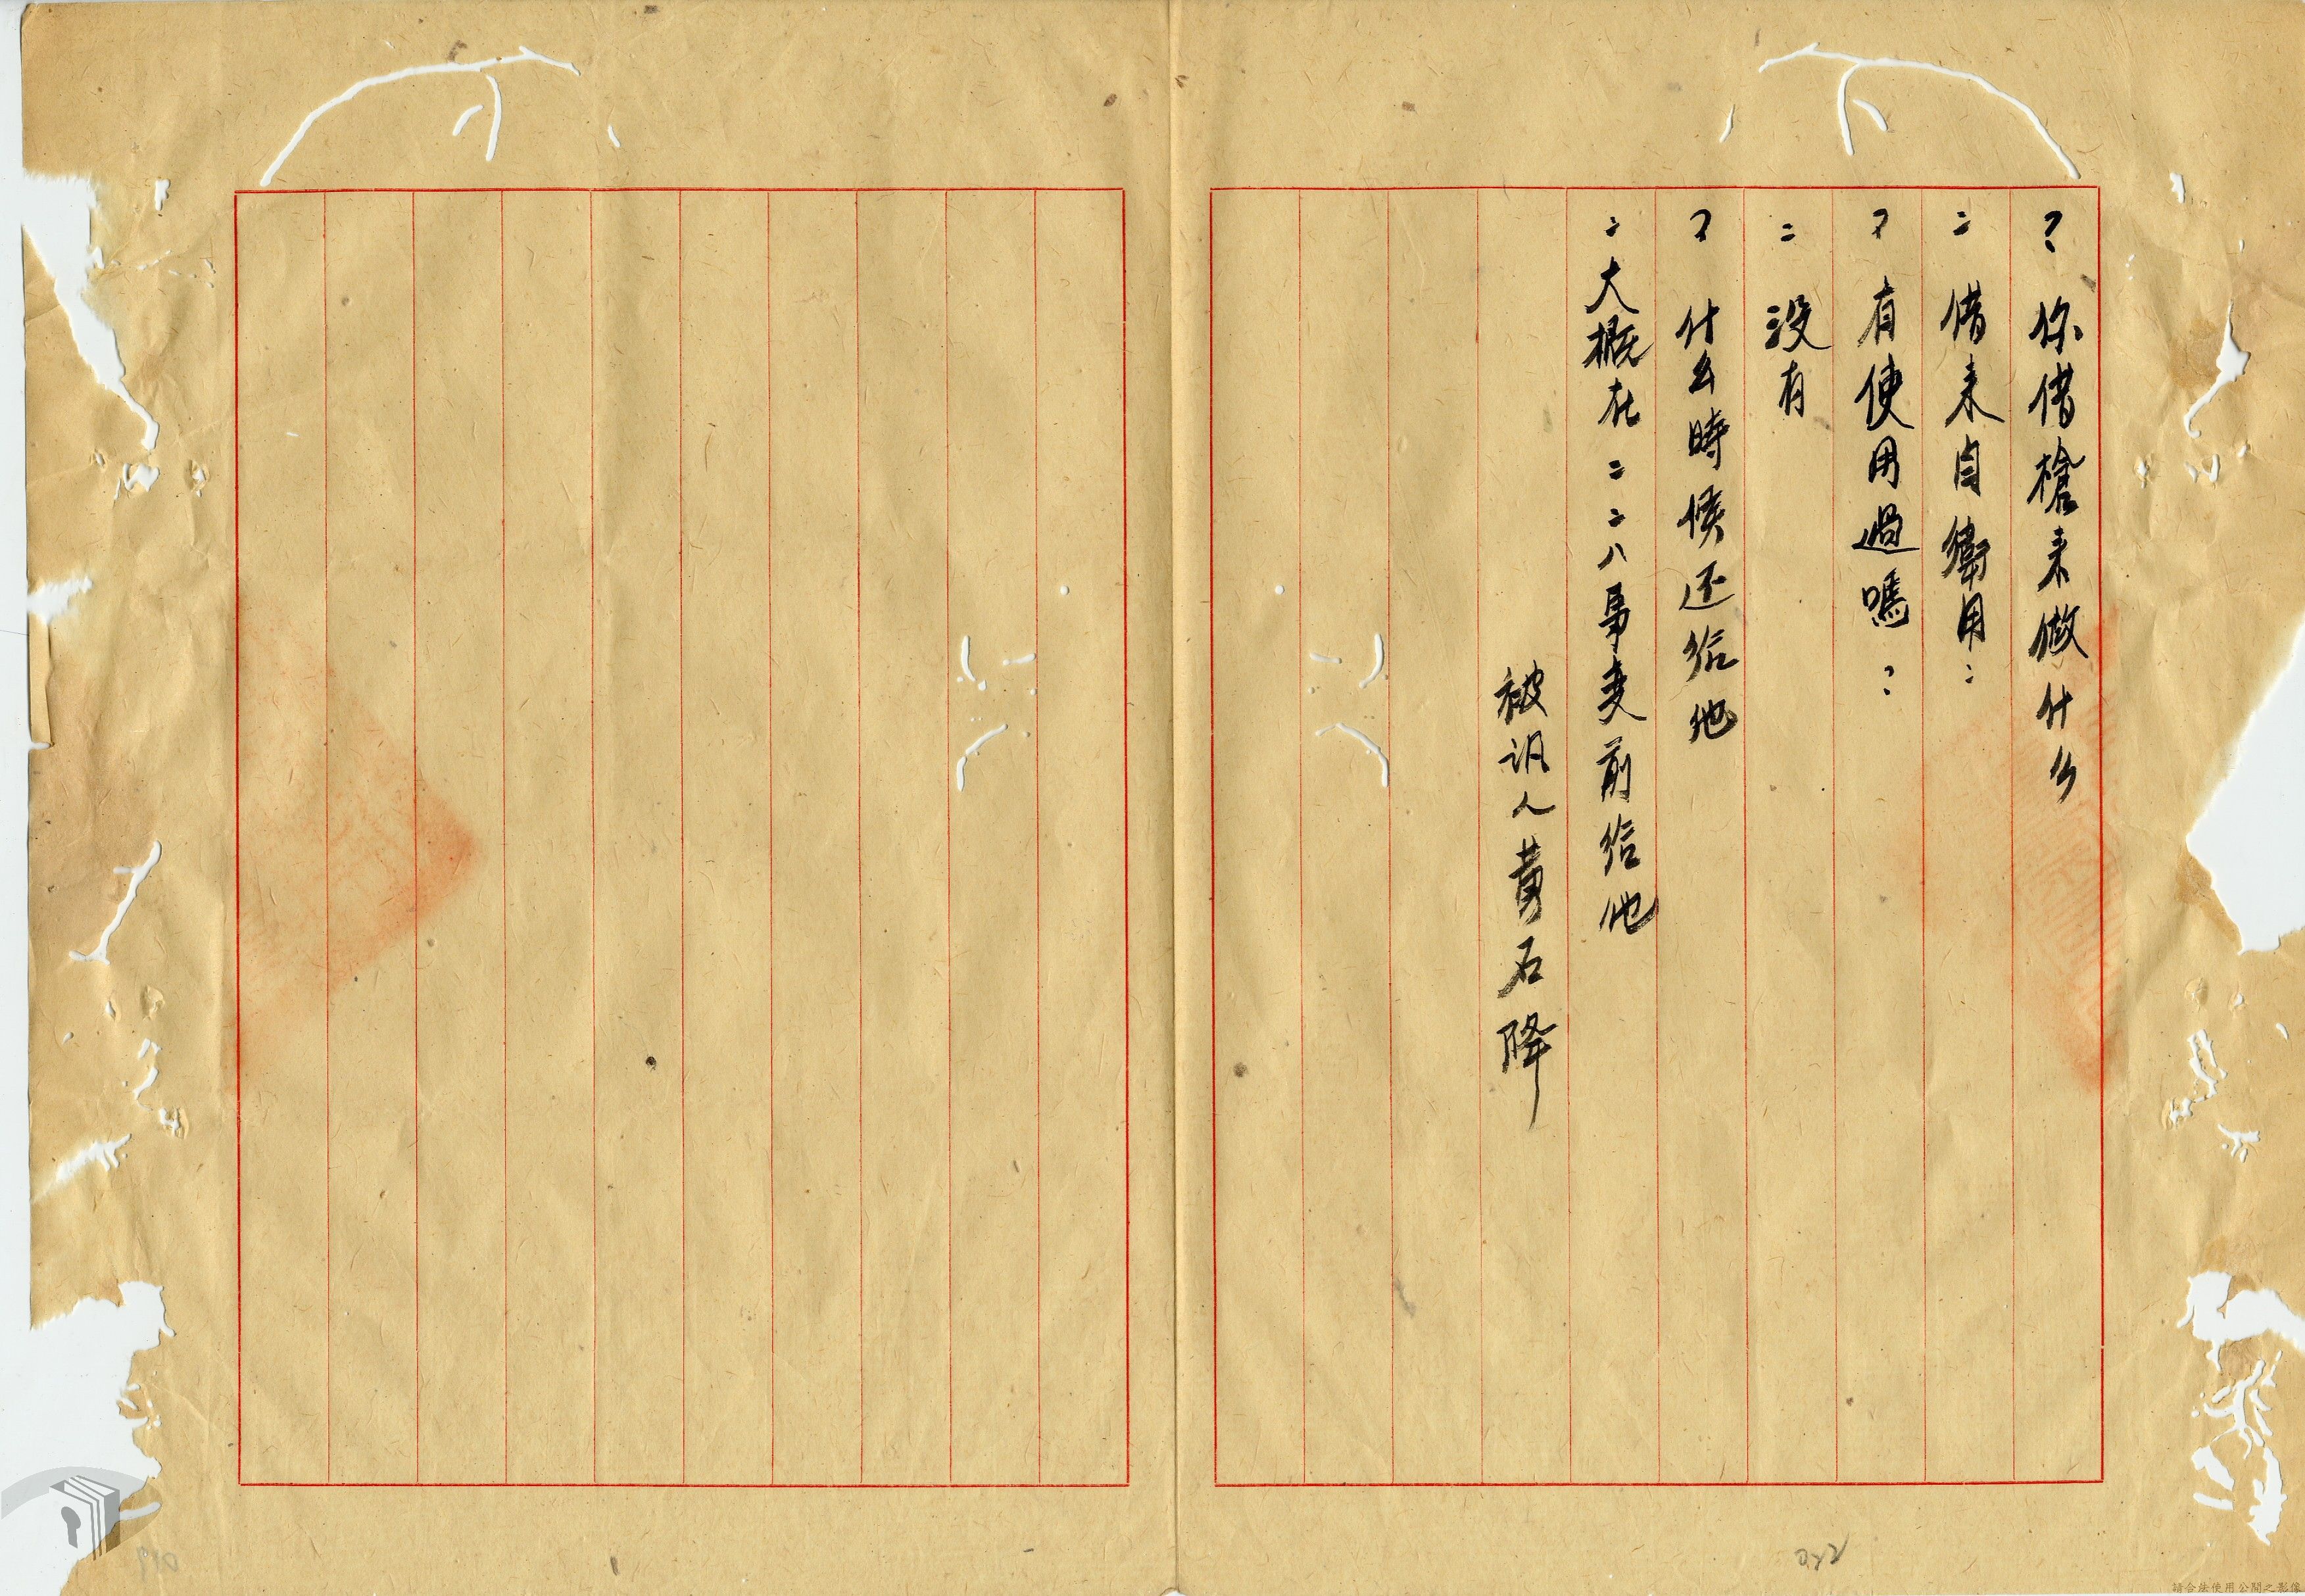 ？你借槍来做什么
：借来自衛用：
？有使用過嗎？
：没有
？什么時候还给他
：大概在二二八事変前给他
被讯人黄石降
022
019
請合法使用公開之影像